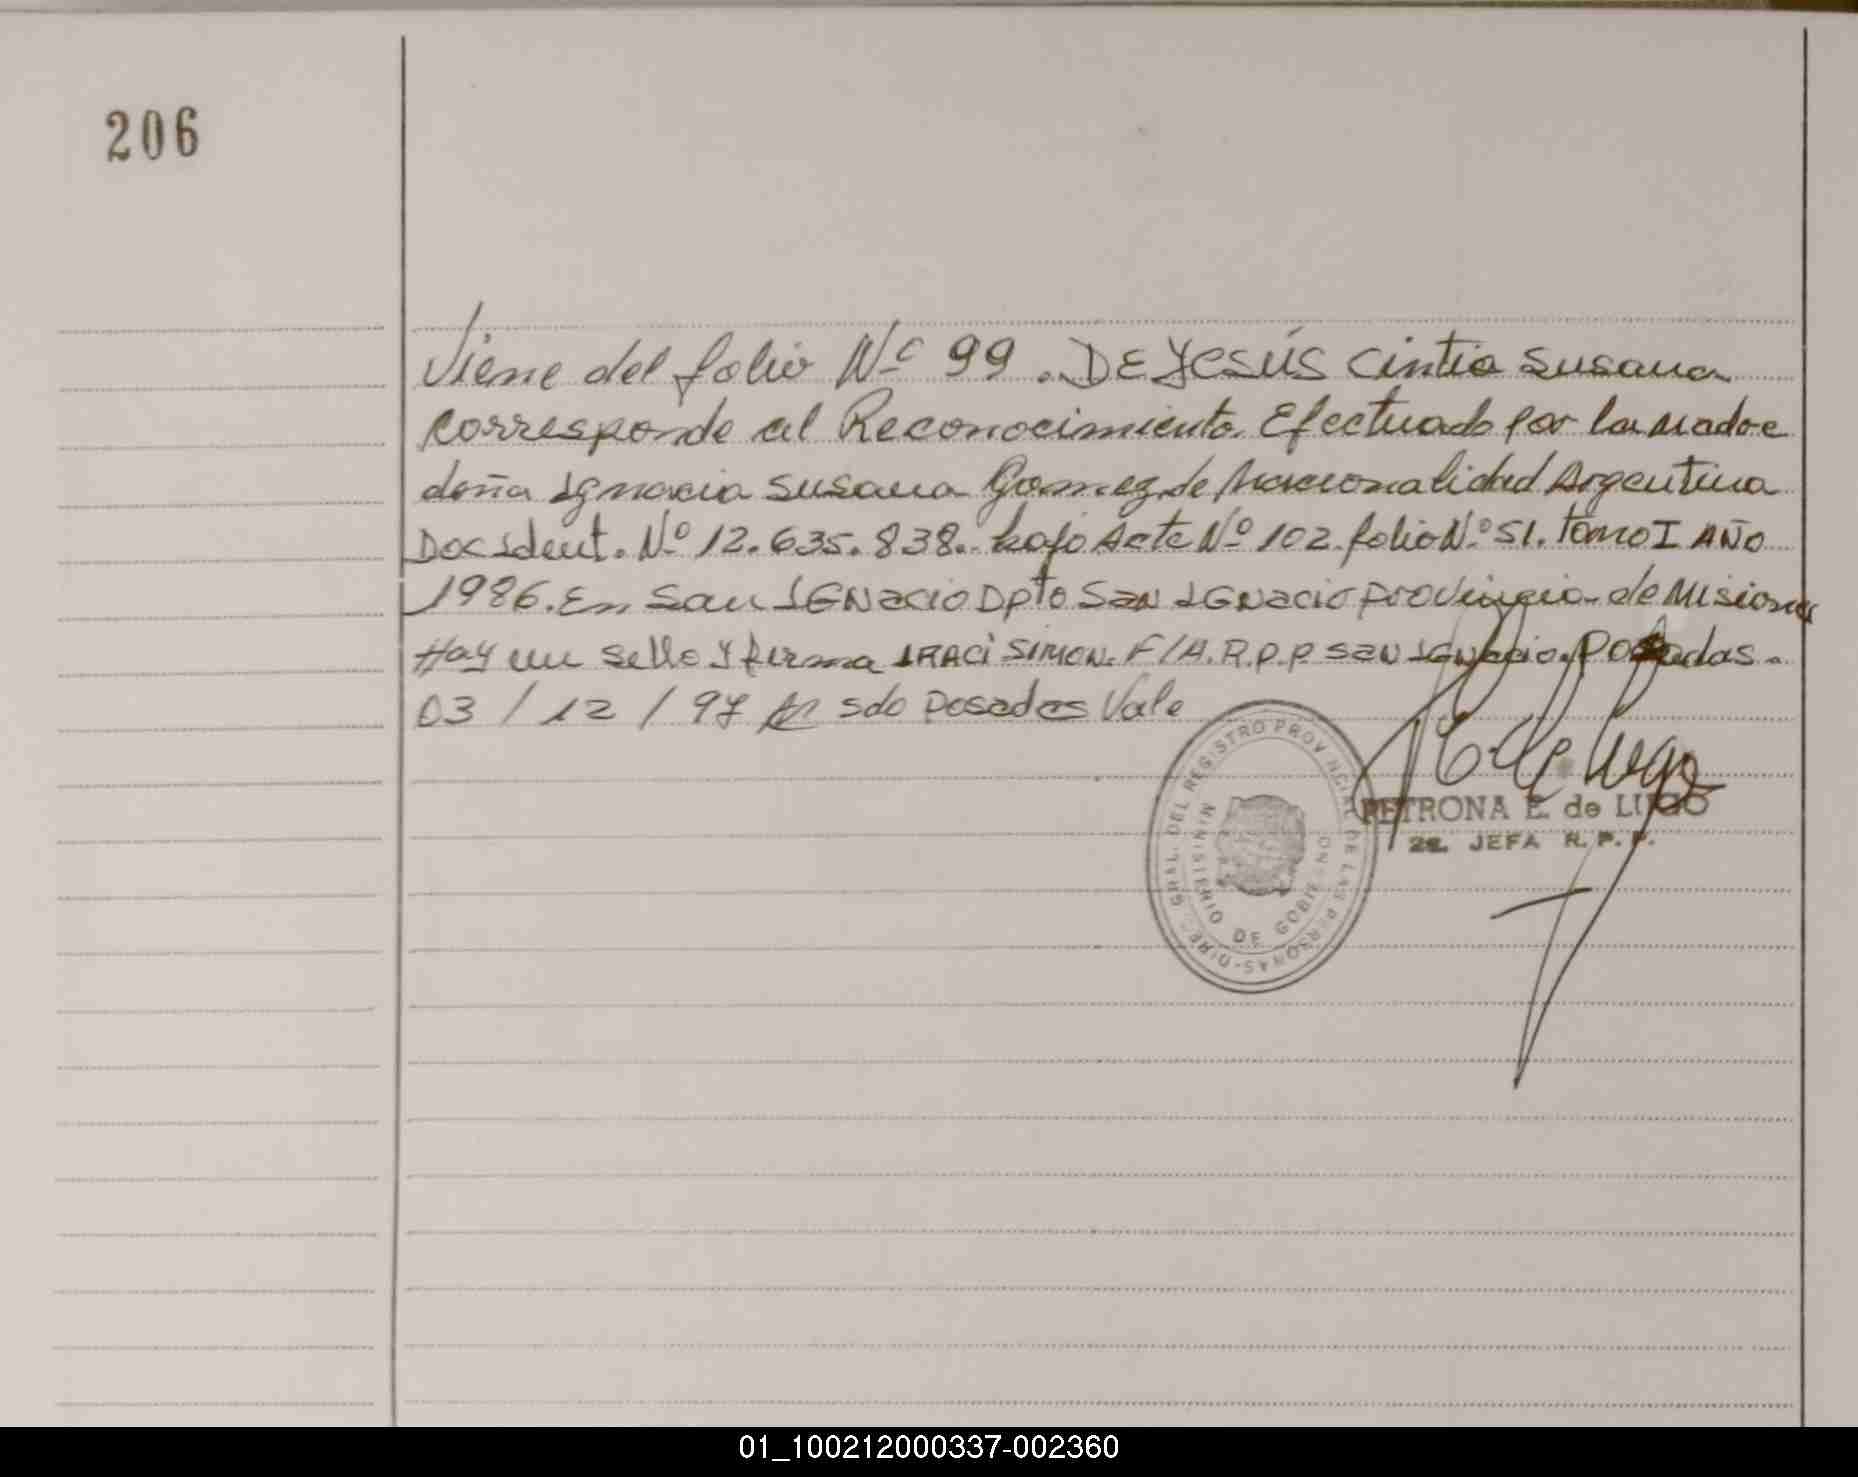 206
Viene del folio Nº 99. DE JESÚS Cintia Susana
corresponde al Reconocimiento. Efectuado por la madre
doña Ignacia Susana Gomez, de Nacionalidad Argentina
Doc Ident. Nº 12.635.838. bajo Acta Nº 102. folio Nº 51. Tomo I AÑO
1986. En San IGNacio Dpto San IGNacio provincia de Misiones
Hay un sello y firma IRACI SIMON. F/A. R.P.P San IGNacio. Posadas.
03 / 12 / 97 sdo Posadas Vale
DIREC GRAL. DEL REGISTRO PROVINCIAL DE LAS PERSONAS
MINISTERIO DE GOBIERNO
PETRONA E. de LUGO
2a. JEFA R. P. P.
01_100212000337-002360